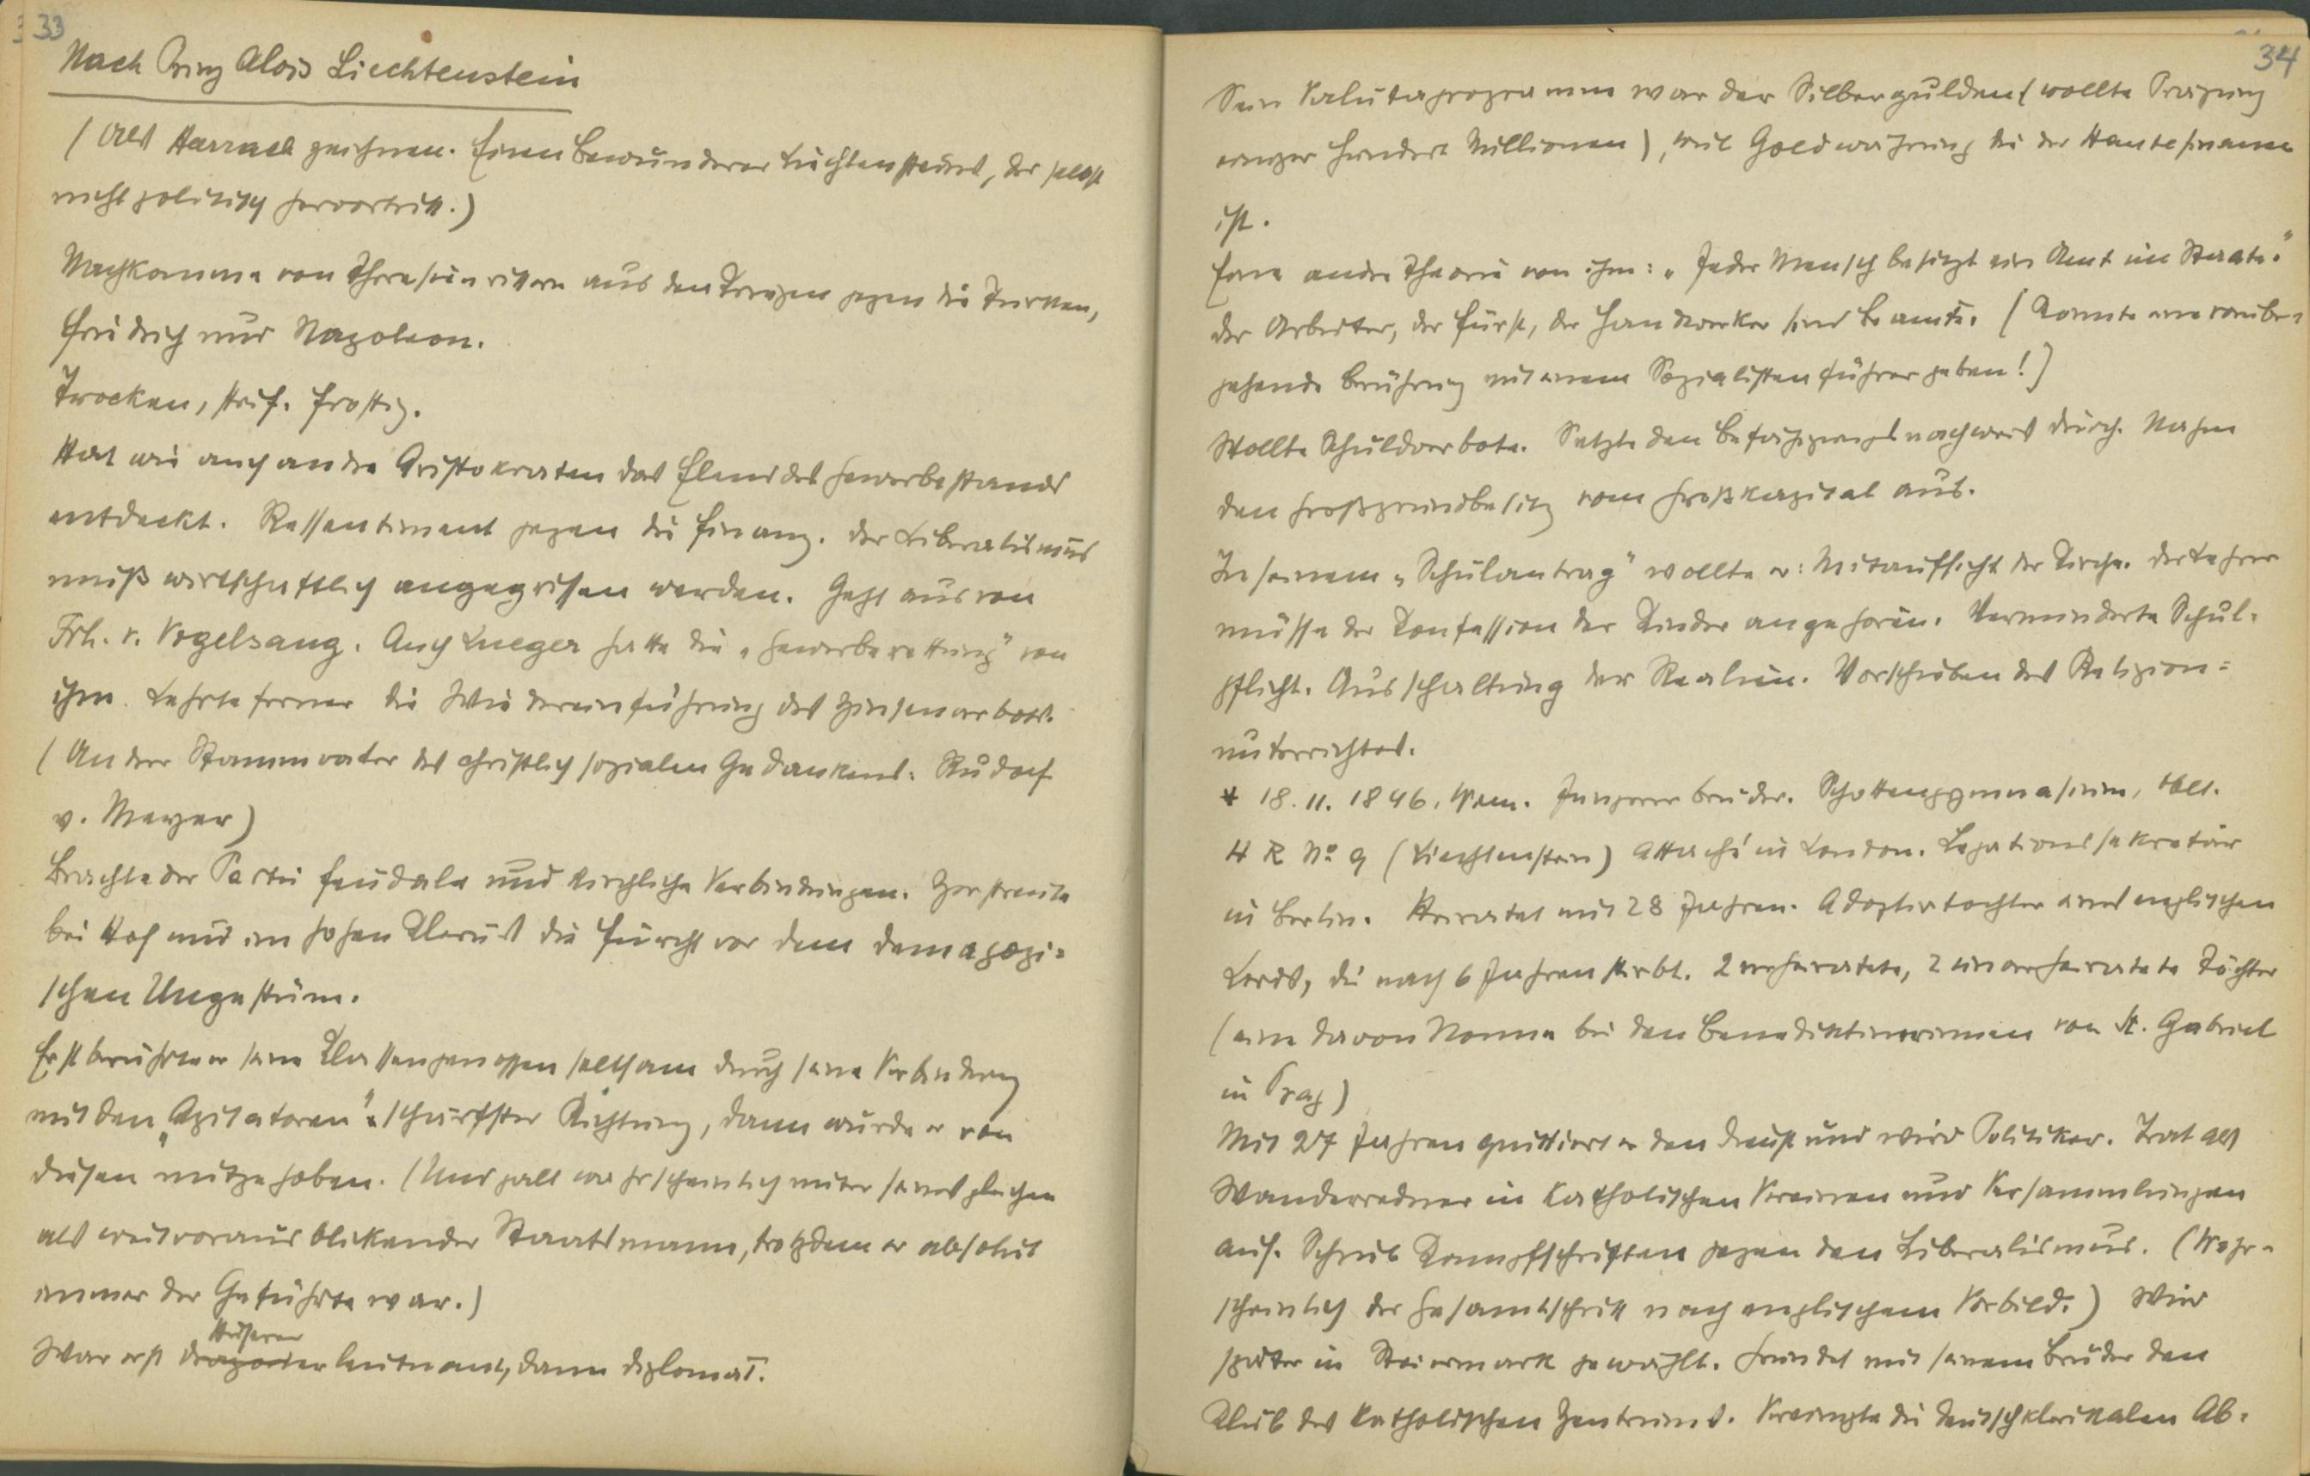 33
Nach Prinz Alois Liechtenstein
(Als Harrach zeichnen. Einen Bewunderer Liechtensteins, der selbst
nicht politisch hervortritt.)
Nachkomme von Theresienrittern aus den Kriegen gegen die Türken,
Friedrich und Napoleon.
Trocken, steif. frostig.
Hat wie auch andre Aristokraten das Elend des Gewerbestands
entdeckt. Ressentiment gegen die Finanz. Der Liberalismus
muß wirtschaftlich angegriffen werden. Geht aus von
Frh. v. Vogelsang. Auch Lueger hatte die „Gewerberettung" von
ihm. Lehrte ferner die Wiedereinführung des Zinsenverbots.
(Andrer Stammvater des christlich sozialen Gedankens: Rudolf
v. Meyer)
Brachte der Partei feudale und kirchliche Verbindungen. Zerstreute
bei Hof und im hohen Klerus die Furcht vor dem demagogi=
schen Ungestüm.
Erst berührte er seine Klassengenossen seltsam durch seine Verbindung
mit den „Agitatoren" schärfster Richtung, dann wurde er von
diesen mitgehoben. (Und galt wahrscheinlich unter seinesgleichen
als weitvorausblickender Staatsmann, trotzdem er absolut
immer der Geführte war.)
War erst Husaren
leutnant, dann Diplomat.
34
Sein Valutaprogramm war der Silbergulden (wollte Prägung
einiger hundert Millionen), weil Goldwährung die der Hautefinance
ist.
Eine andre Theorie von ihm: „Jeder Mensch besitzt ein Amt im Staate."
der Arbeiter, der Fürst, der Handwerker sind Beamte. (Konnte eine vorüber=
gehende Berührung mit einem Sozialistenführer geben!)
Wollte Schuldverbote. Setzte den Befähigungsnachweis durch. Nahm
den Großgrundbesitz vom Großkapital aus.
In seinem „Schulantrag" wollte er: Mitaufsicht der Kirche. Der Lehrer
müsse der Konfession der Kinder angehören. Verminderte Schul=
pflicht. Ausschaltung der Realien. Vorschieben des Religion=
unterrichtes.
* 18. 11. 1846. Wien. Jüngerer Bruder. Schottengymnasium,
4 R No 9 (Liechtenstein) Attaché in London. Legationssekretär
in Berlin. Heiratet mit 28 Jahren. Adoptivtochter eines englischen
Lords, die nach 6 Jahren stirbt. 2 verheiratete, 2 unverheiratete Töchter
(eine davon Nonne bei den Benediktinerinnen von St. Gabriel
in Prag)
Mit 27 Jahren quittiert er den Dienst und wird Politiker. Trat als
Wanderredner in katholischen Vereinen und Versammlungen
auf. Schrieb Kampfschriften gegen den Liberalismus. (Wahr=
scheinlich der Gesamtschritt nach englischem Vorbild.) Wird
später in Steiermark gewählt. Gründet mit seinem Bruder den
Klub des katholischen Zentrums. Vereinigte die deutschklerikalen Ab=